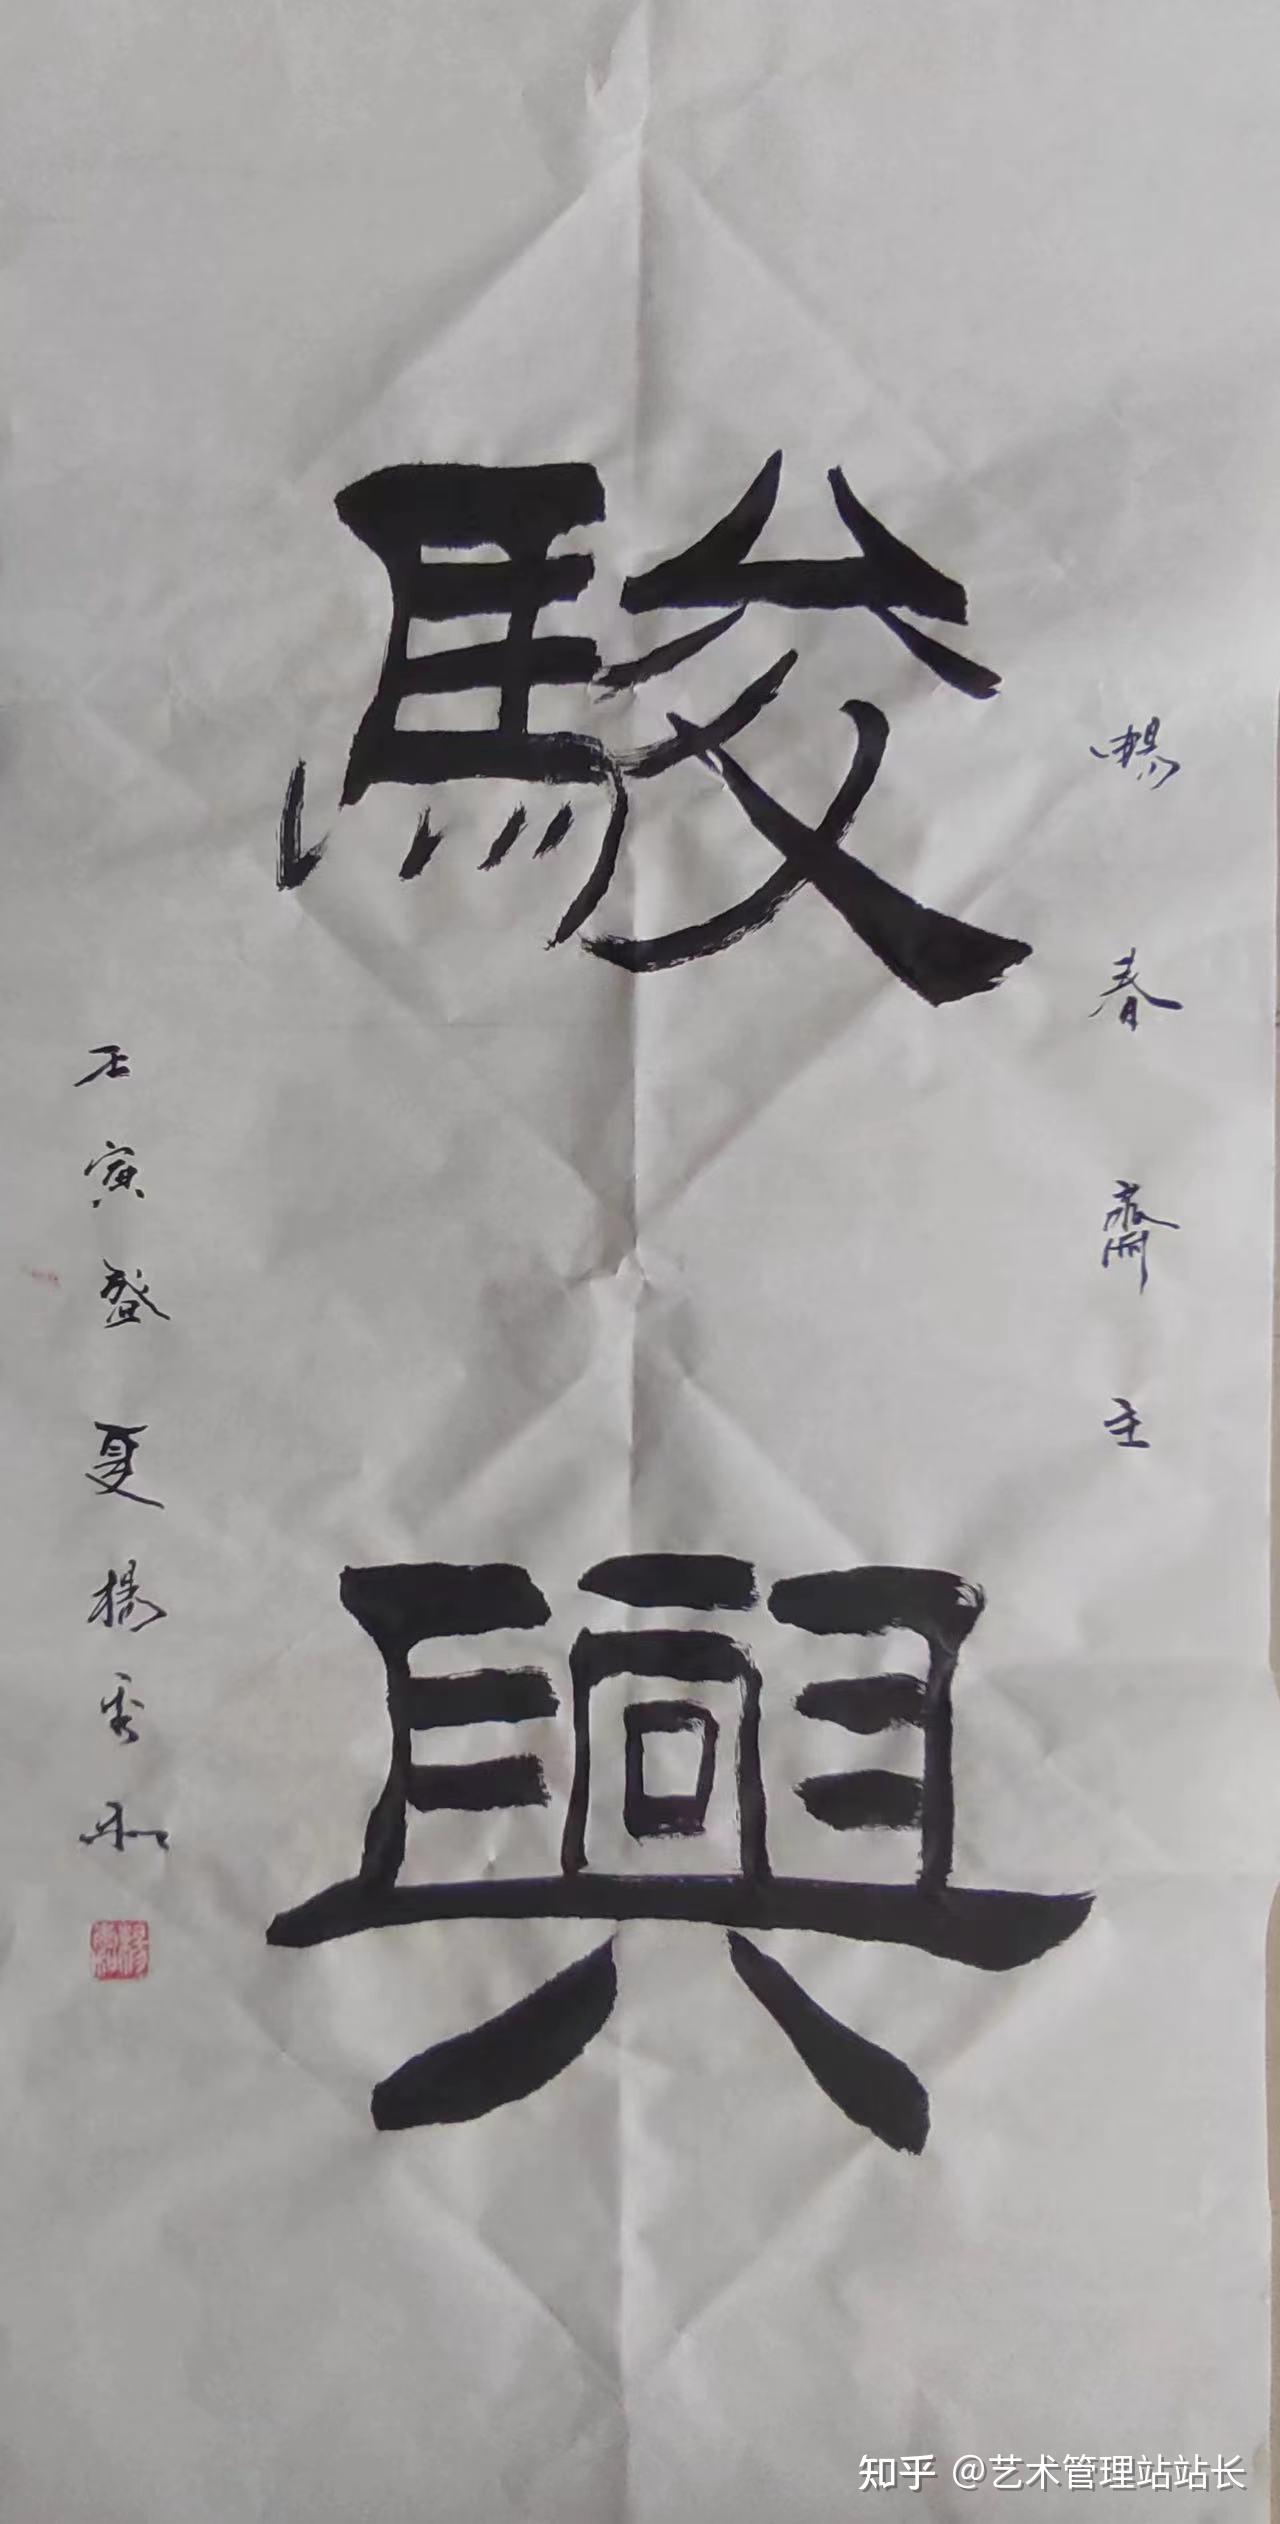 暢春齋主
駿興
壬寅盛夏楊
知乎 @艺术管理站站长